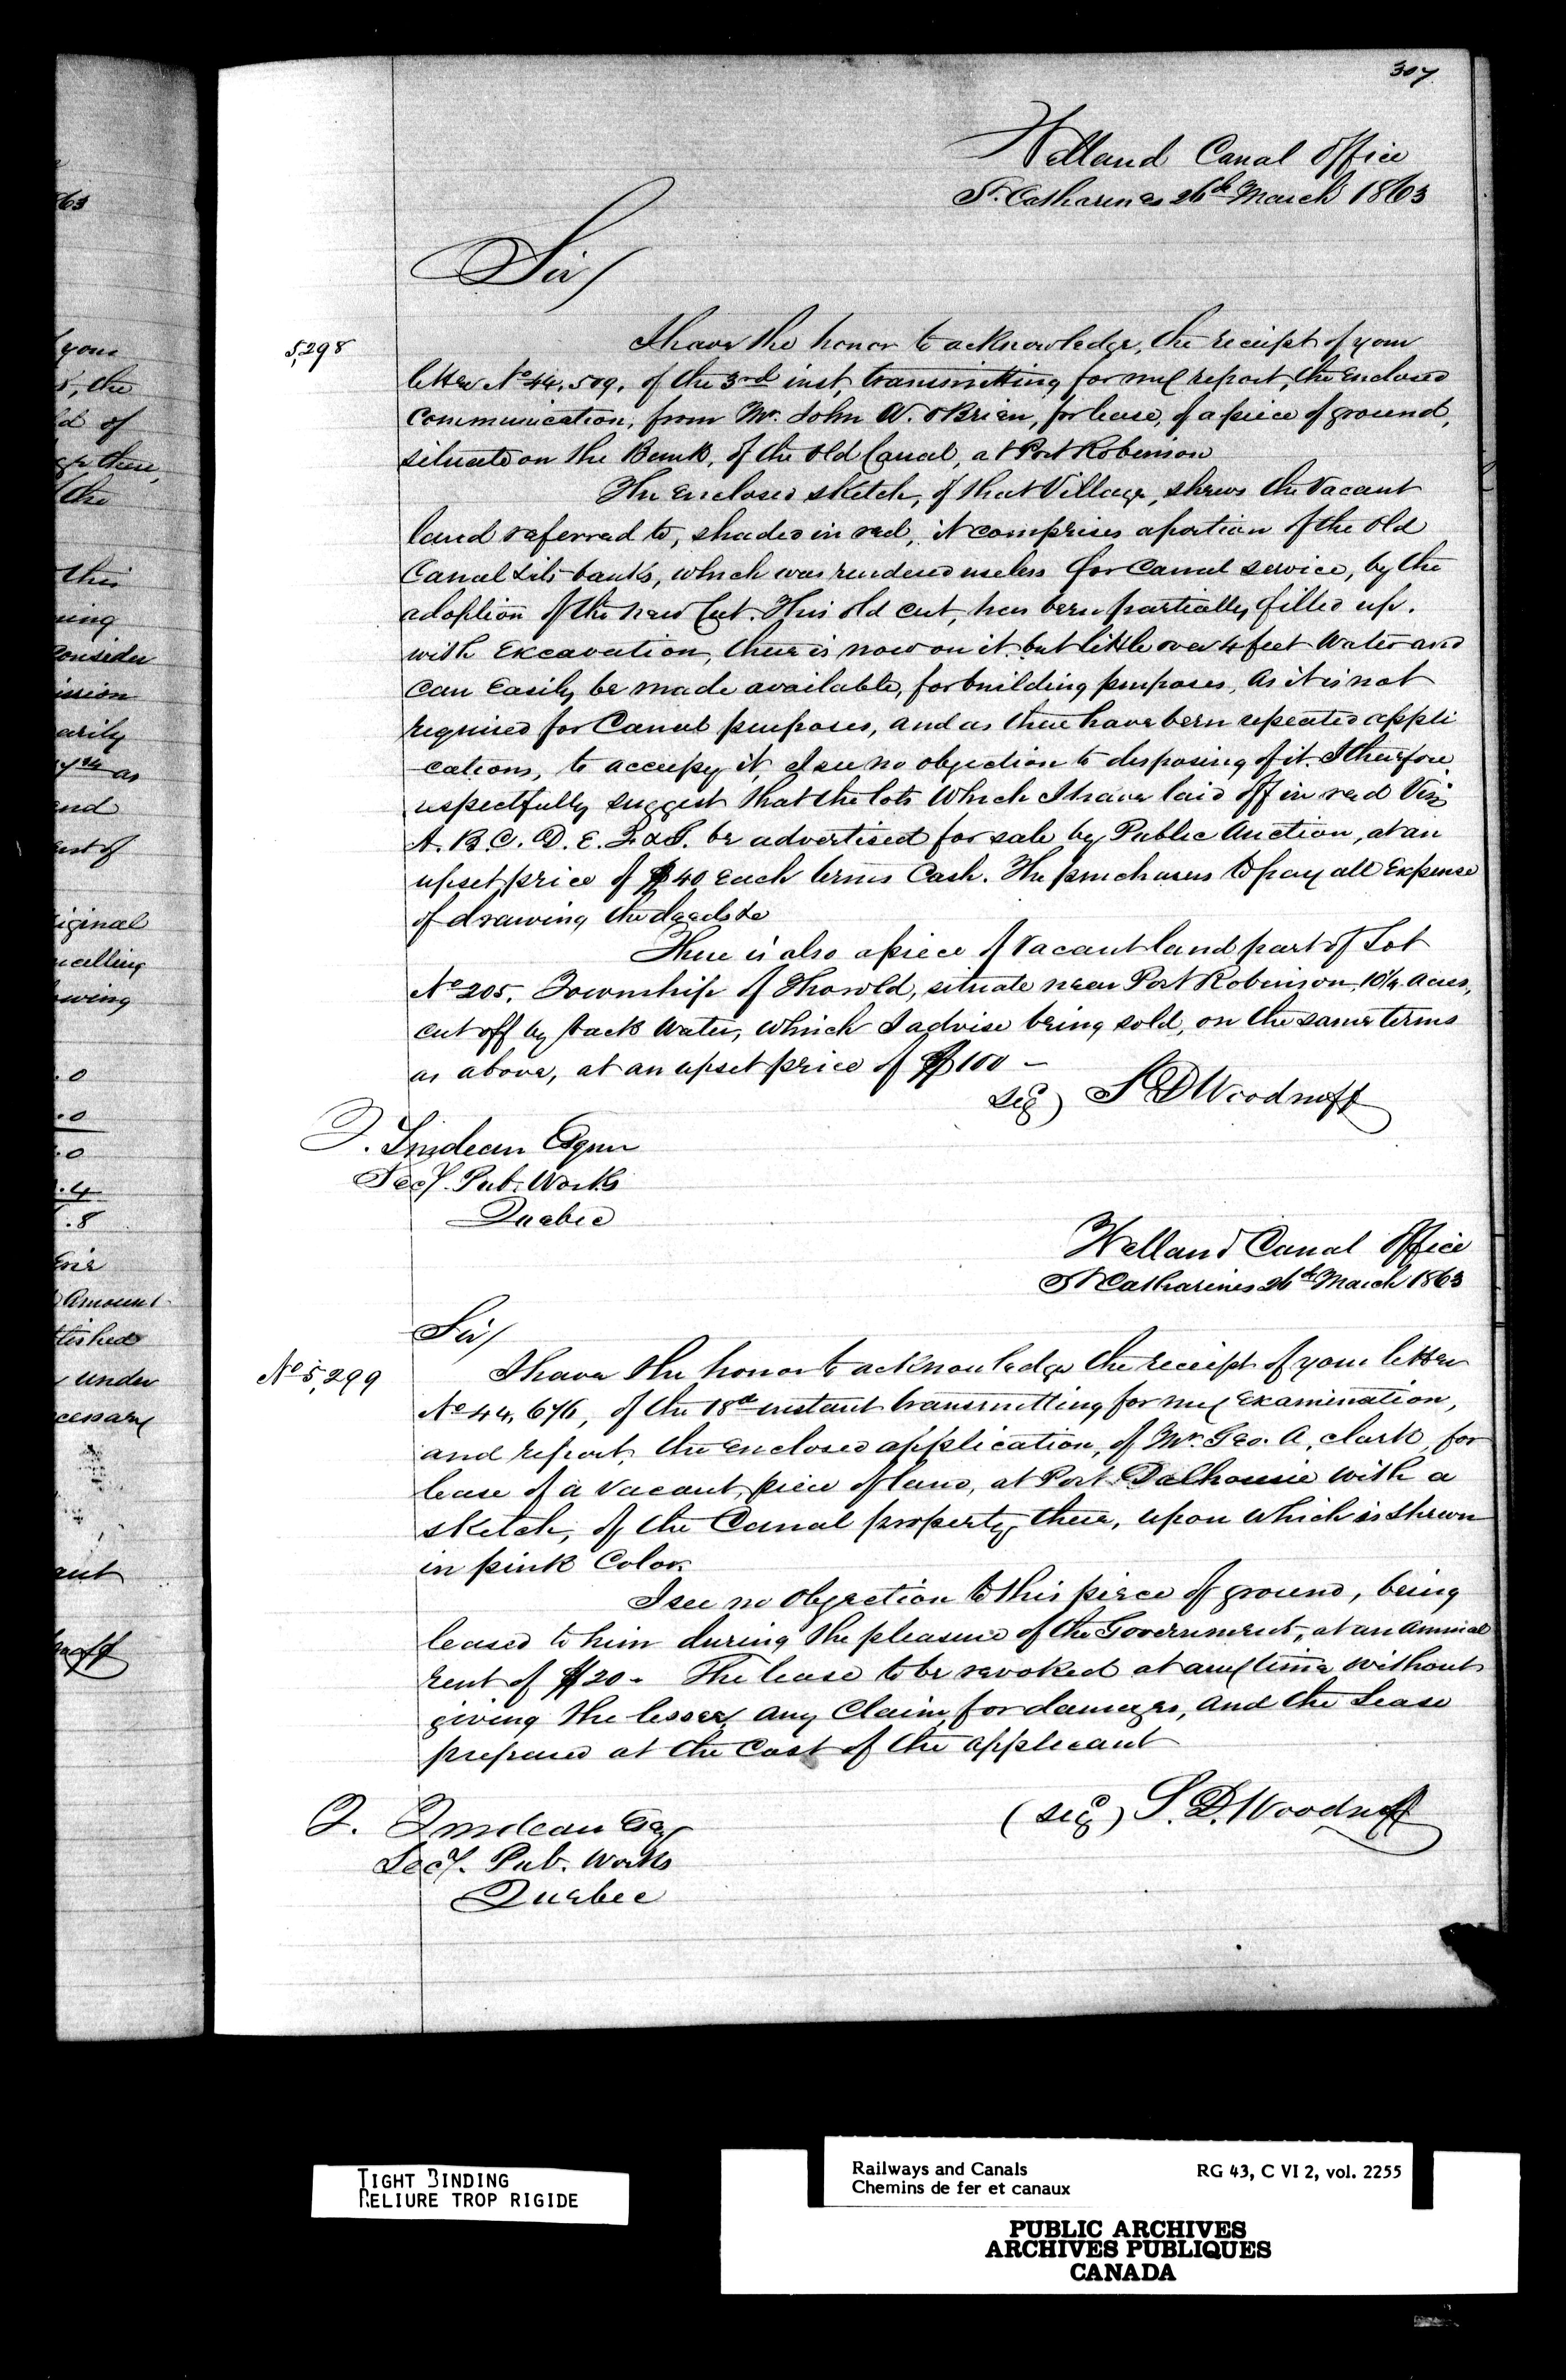 307
Welland Canal Office
St. Catharines 26th March 1863
Sir/
5,298
I have the honor to acknowledge, the receipt of your
letter No 44,509, of the 3rd inst, transmitting for my report, the enclosed
communication, from Mr. John W. OBrien, for lease, of a piece of ground,
situate on the Bank, of the Old Canal, at Port Robinson
The enclosed sketch, of that Village, shews the vacant
land referred to, shaded in red, it comprises a portion of the old
Canal & its banks, which was rendered useless for Canal service, by the
adoption of the new Cut. This old cut, has been partially filled up.
with Excavation, there is now on it but little over 4 feet water and
can easily be made available, for building purposes, as it is not
required for Canal purposes, and as there have been repeated appli
cations, to occupy it, I see no objection to disposing of it. I therefore
respectfully suggest that the lots which I have laid off in red Viz
A. B. C. D. E. F. & G. be advertised for sale by Public Auction, at an
upset price of $40 each terms Cash. The purchasers to pay all Expense
of drawing the deeds &c
There is also a piece of vacant land part of Lot
No 205, Township of Thorold, situate near Port Robinson, 10¼ acres,
cut off by back water, which I advise being sold, on the same terms
as above, at an upset price of $100 -
sigd) S D Woodruff
T. Trudeau Esquire
Secy. Pub. Works
Quebec
Welland Canal Office
St Catharines 26th March 1863
Sir/
No 5,299
I have the honor to acknowledge the receipt of your letter
No 44,676, of the 18th instant transmitting for my examination,
and report, the enclosed application, of Mr. Geo. A. Clark, for
lease of a vacant, piece of land, at Port Dalhousie with a
sketch, of the Canal property there, upon which is shewn
in pink Color.
I see no objection to this piece of ground, being
leased to him during the pleasure of the Government, at an annual
rent of $20 - The lease to be revoked at any time without
giving the lessee, any claim, for damages, and the Lease
prepared at the cost of the applicant
(sigd) S. D. Woodruff
T. Trudeau Esq
Secy. Pub. Works
Quebec
63
your
the
of
there,
the
this
ing
consider
ission
arily
as
end
est of
iginal
ncelling
owing
.0
.0
.0
.4
.8
Erie
Amount
tished
under
cessary
ant
ruff
TIGHT BINDING
RELIURE TROP RIGIDE
Railways and Canals RG 43, C VI 2, vol. 2255
Chemins de fer et canaux
PUBLIC ARCHIVES
ARCHIVES PUBLIQUES
CANADA